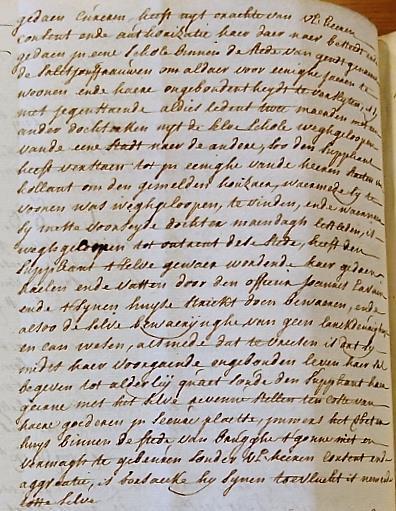 gedaen cureren, heeft uyt crachte van VL heeren
consent ende authorizatie haer daer naer besteedt ende
gedaen in eene schole binnen de stede van gendt genaemt
de om aldaer voor eenighe jaeren te
woonen ende haere ongebondentheydt te
niet jegenstaende aldis ledent twee maenden met een
ander dochterken uyt de selve schole wegh geloopen
vande eene stadt naer de andere, soo den suppliant
heeft tot in eenighe vande heeren staeten van
hollant om den gemelden te vinden, waermede sy te
vooren was wegh geloopen, te vinden, ende wannen
sy mette voorseyde dochter maendagh lestleden, is
wegh geloopen tot ontrent dese stede, heeft den
suppliant t selve gewaer wordende haer gedaen
haelen ende vatten door den officier Joannes
ende t synen huyse strickt doen bewaeren, ende
alsoo de selve bewaerijnghe van geen lanckduerigheyt
en can wesen, altmede dat te vreesen is dat sy
midts haer voorgaende ongebonden leven haer sal
begeven tot alderley quaet soude den suppliant haer
geerne met het selve stellen ten coste van
haere goederen in seure plaetse, immers het
huys binnen de stede van Brugghe t gonne niet en
vermagh te gebeuren sonder VL heeren consent ende
aggreatie, is oorsaecke hy synen toevlucht is nemende
totte selve